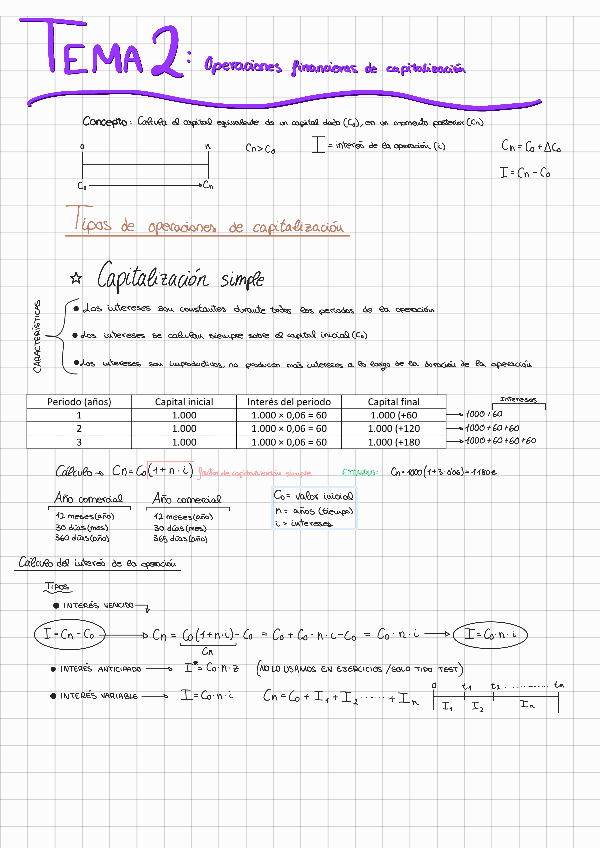 TEMA 2: Operaciones financieras de capitalización
Concepto: Calcula el capital equivalente de un capital dado (C₀), en un momento posterior (Cn)
0 n
Cn > C₀
I = interés de la operación (i)
Cn = C₀ + ΔC₀
I = Cn - C₀
C₀ → Cn
Tipos de operaciones de capitalización
☆ Capitalización simple
CARACTERÍSTICAS
• Los intereses son constantes durante todos los periodos de la operación
• Los intereses se calculan siempre sobre el capital inicial (C₀)
• Los intereses son improductivos, no producen más intereses a lo largo de la duración de la operación
Intereses
Periodo (años) Capital inicial Interés del periodo Capital final
1 1.000 1.000 × 0,06 = 60 1.000 (+60 → 1000 + 60
2 1.000 1.000 × 0,06 = 60 1.000 (+120 → 1000 + 60 + 60
3 1.000 1.000 × 0,06 = 60 1.000 (+180 → 1000 + 60 + 60 + 60
Cálculo → Cn = C₀(1 + n · i) factor de capitalización simple EJEMPLO: Cn = 1000(1 + 3 · 0'06) = 1180€
Año comercial
12 meses (año)
30 días (mes)
360 días (año)
Año comercial
12 meses (año)
30 días (mes)
365 días (año)
C₀ = valor inicial
n = años (tiempo)
i = intereses
Cálculo del interés de la operación
TIPOS
• INTERÉS VENCIDO
I = Cn - C₀ → Cn = C₀(1 + n · i) - C₀ = C₀ + C₀ · n · i - C₀ = C₀ · n · i → I = C₀ · n · i
Cn
• INTERÉS ANTICIPADO → I* = C₀ · n · z (NO LO USAMOS EN EJERCICIOS / SOLO TIPO TEST)
• INTERÉS VARIABLE → I = C₀ · n · i Cn = C₀ + I₁ + I₂ ...... + In
0 t₁ t₂ ............ tn
I₁ I₂ In